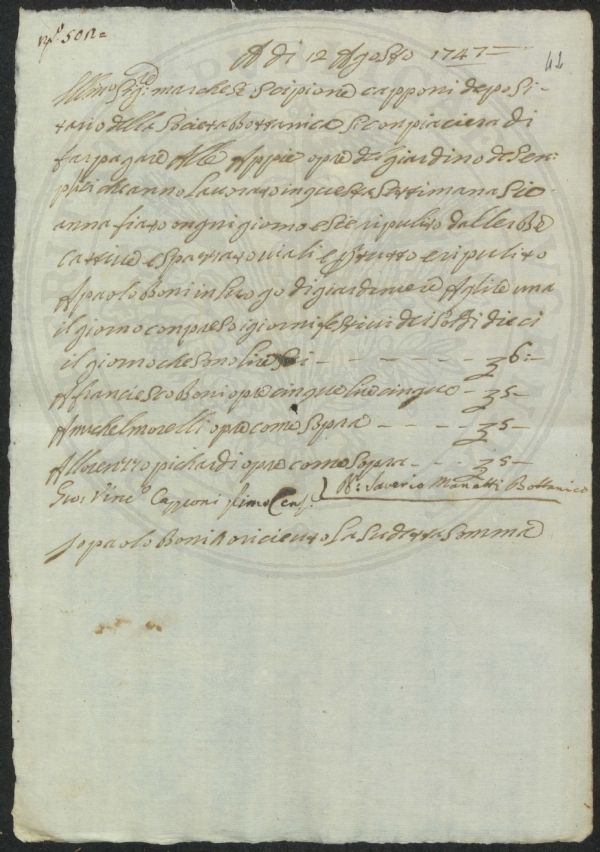 N.° 501=
A di 12 Agosto 1747
42
Ill.mo Sig.re marchese Scipione Capponi deposi-
tario della Societa Bottanica si conpiacera di
far pagare Alle Appiè opre del giardino de Sen-
plici che anno lavorato in questa Settimana Sie
anna fiato ongni giorno e sie ripulito dallerbe
Cattive e spazzato viali e per tutto e ripulito
A paolo Boni in luogo di giardiniere A lire una
il giorno conpreso i giorni festivi dei Soldi dieci
il giorno che sono lire Sei - - - - - - - - 6:-
A franciesco Boni opre cinque lire cinque - 5-
A michel morelli opre come Sopra - - - - 5-
A llorenzo pichardi opre come Sopra - - - 5-
Gio: Vinc.o Capponi Primo Cens.e
D.r Saverio Manetti Bottanico
Io paolo Boni o ricieuto la Sudetta Somma